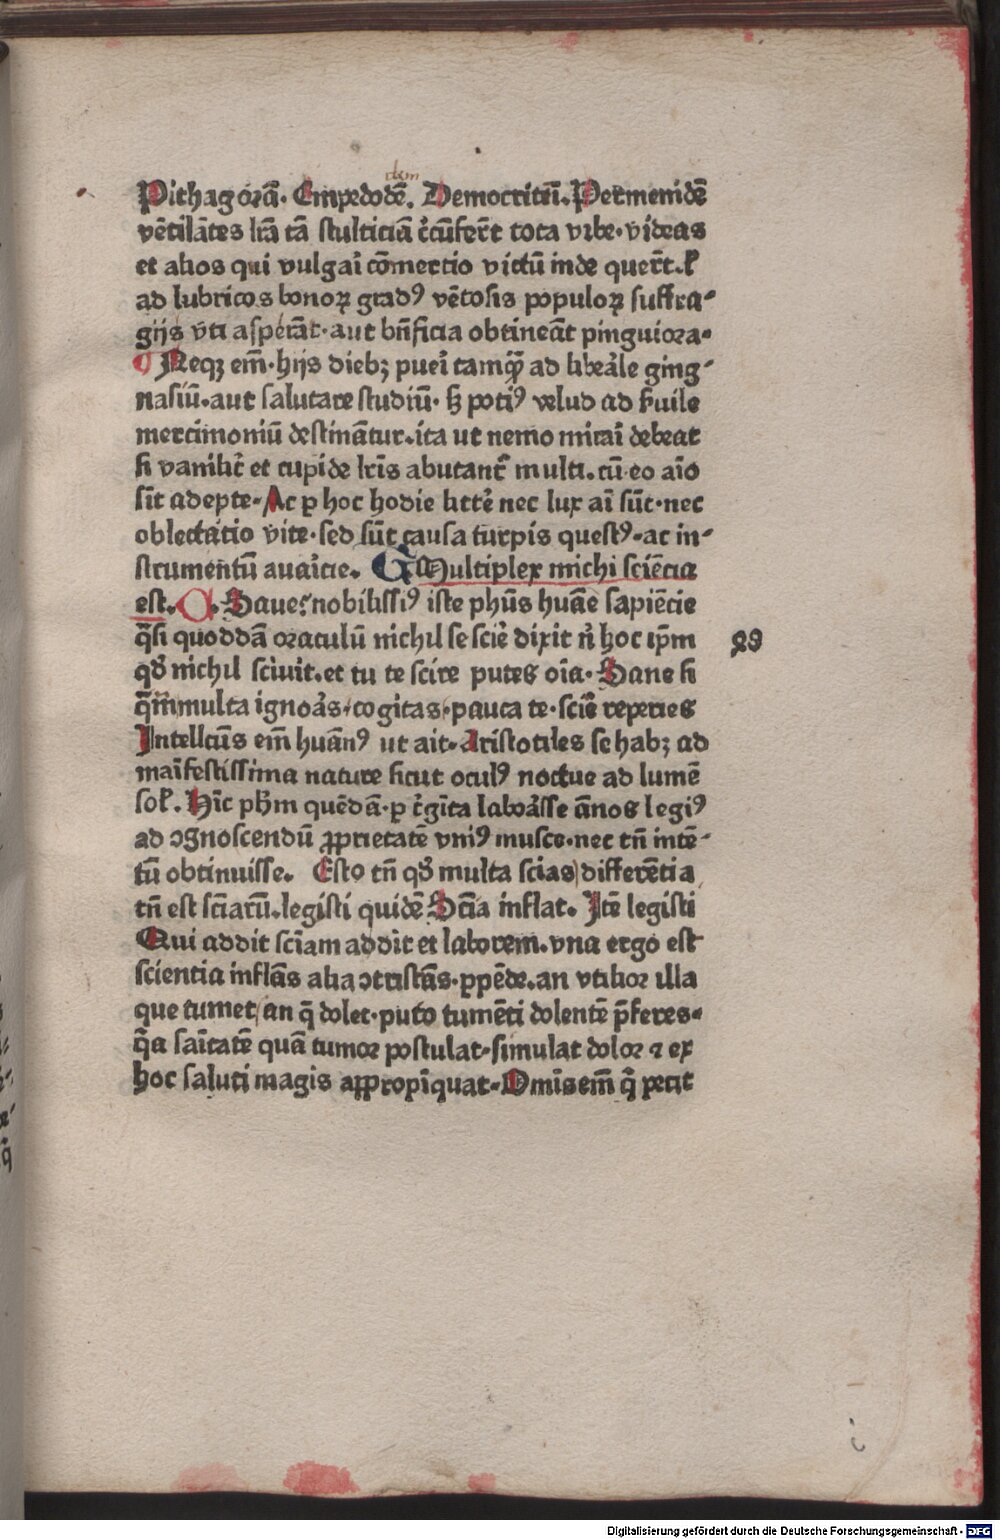 dem
Pithagorā. Empedodē. Democritū. Permenidē
vētilātes lrā tā stulticiā c̄cūferēt tota vrbe. videas
et alios qui vulgari cōmercio victū inde querēt. l'
ad lubricos honoꝝ gradꝰ vētosis populoꝝ suffra⸗
gijs vti asperāt. aut bn̄ficia obtineāt pinguiora.
Neqꝫ em̄. hijs diebꝫ pueri tamqͣꝫ ad liberale ging⸗
nasiū. aut salutare studiū. sꝫ potiꝰ velud ad ẜuile
mercimoniū destināntur. ita ut nemo mirari debeat
si vanilit̄ et cupide lris abutant̄ multi. cū eo aīo
sīt adepte. Ac ꝑ hoc hodie litte nec lux ai sūt. nec
oblectatio vite. sed sūt causa turpis questꝰ. ac in⸗
strumentū auaricie. Multiplex michi sciēcia
est. Saue nobilissiꝰ iste phūs huāe sapiēcie
qͣsi quoddā oraculū nichil se scire dixit ni hoc ip̄m
qđ nichil sciuit. et tu te scire putes oīa. Sane si
qͣm multa ignoras cogitas pauca te scire reperies
Intellcūs em̄ huānꝰ ut ait. Aristotiles se habꝫ ad
manifestissima nature sicut oculꝰ noctue ad lumē
sol'. Hīc ph̄m quēdā. ꝑ t̄gīta laborasse ānos legiꝰ
ad ꝯgnoscendū ꝓprietatē vniꝰ musce. nec tn̄ intē⸗
tū obtinuisse. Esto tn̄ qđ multa scias differētia
tn̄ est scīarū. legisti quidē Scīa inflat. Itē legisti
Qui addit scīam addit et laborem. vna ergo est
scientia inflās alia ꝯtristās. ꝑpēde. an vtilior illa
que tumet an q̄ dolet. puto tumēti dolentē p̄feres.
qͣa saītatē quā tumor postulat. simulat dolor ⁊ ex
hoc saluti magis aꝓpropīquat. Omis em̄ qͥ petit
29
i
Digitalisierung gefördert durch die Deutsche Forschungsgemeinschaft - DFG